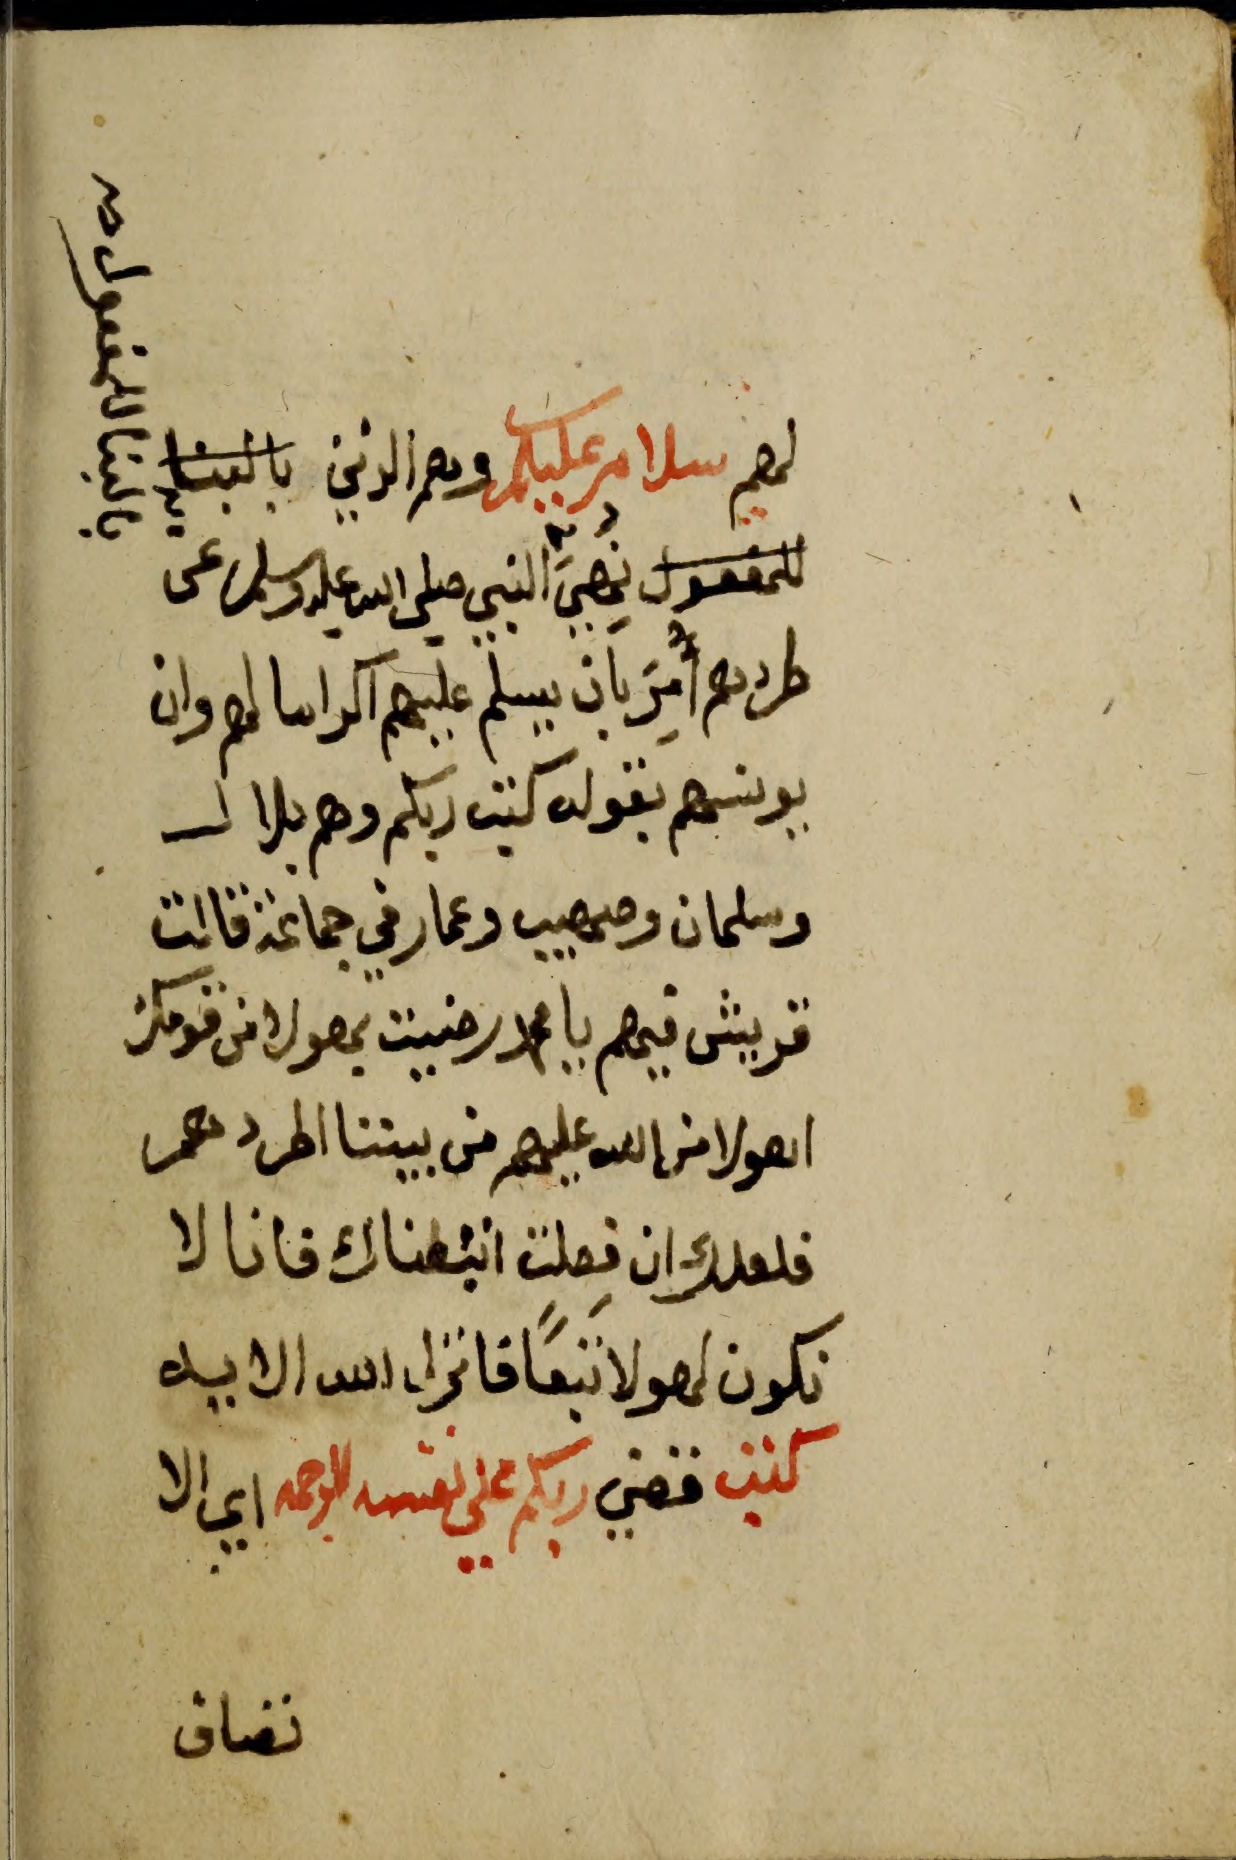 لهم سلام عليكم وهم الذين بالبنا
للمفعول نُهِيَ النبي صلى الله عليه وسلم عن
طردهم أُمِرَ بان يسلم عليهم اكراما لهم وان
يونسهم بقوله كتب ربكم وهم بلال
وسلمان وصهيب وعمار في جماعة قالت
قريش فيهم يا محمد رضيت بهولا من قومك
اهولا من الله عليهم من بيننا اطردهم
فلعلك ان فعلت اتبعناك فانا لا
نكون لهولا تبعًا فانزل الله الايه
كتب قضي ربكم علي نفسه الرحمه اي الا
تضاق
بالبنا للمفعول صح